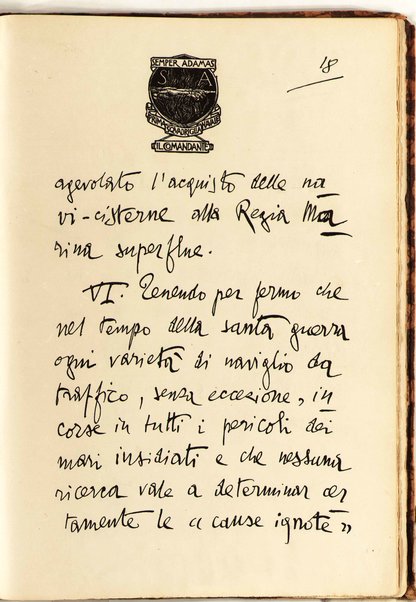 SEMPER ADAMAS
18
S A
PRIMA SQUADRIGLIA NAVALE
IL COMANDANTE
agevolato l'acquisto delle na
vi-cisterne alla Regia Ma
rina superflue.
VI. Tenendo per fermo che
nel tempo della santa guerra
ogni varietà di naviglio da
traffico, senza eccezione, in
corse in tutti i pericoli dei
mari insidiati e che nessuna
ricerca vale a determinar cer
tamente le « cause ignote »